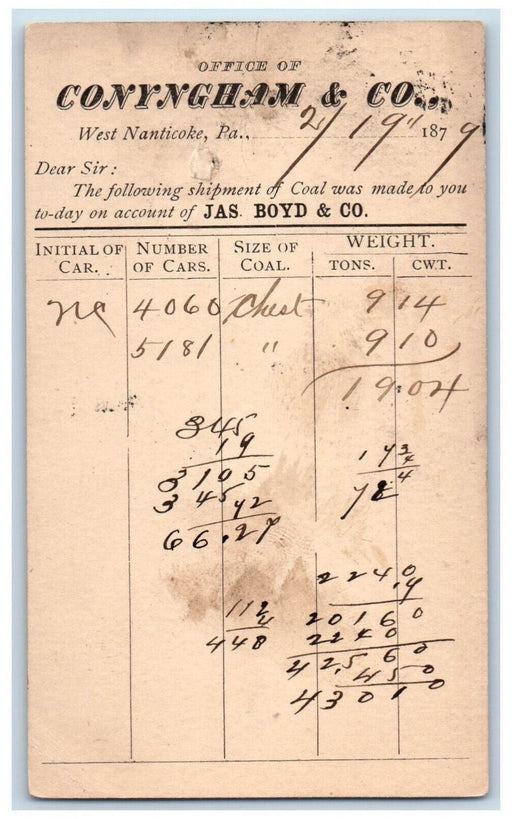 OFFICE OF
CONYNGHAM & CO.,
West Nanticoke, Pa., 2/19" 1879
Dear Sir:
The following shipment of Coal was made to you
to-day on account of JAS. BOYD & CO.
INITIAL OF CAR. NUMBER OF CARS. SIZE OF COAL. WEIGHT. TONS. CWT.
4060 Chest 9 14
5181 " 9 10
19.04
345
19
3105
345
72
66.27
17 3/4
4
2240
112
4
448
20160
2240
42560
450
43010